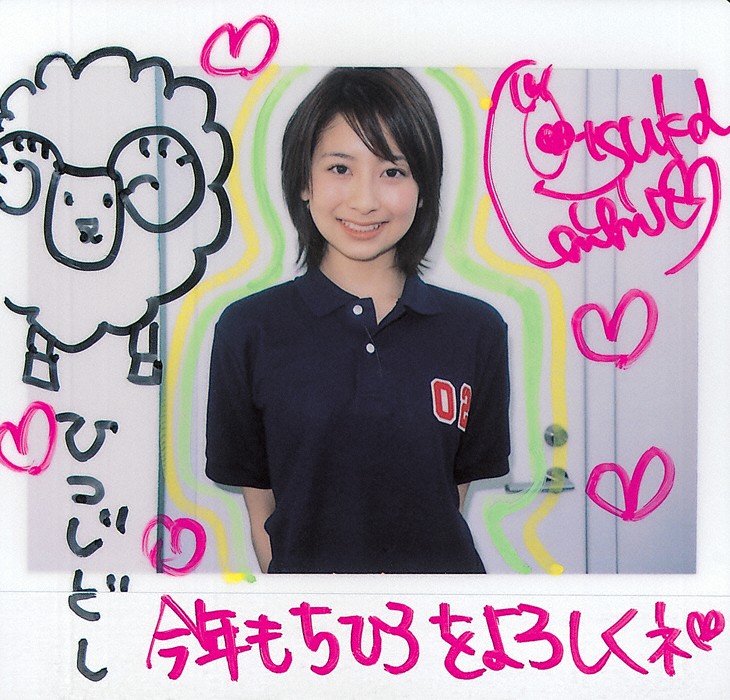 Otsuka
Chihiro
02
ひつじどし
今年もちひろをよろしくネ